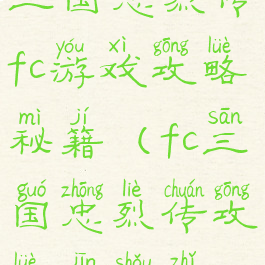 三国忠烈传
yóu xì gōng lüè
fc游戏攻略
mì jí sān
秘籍（fc三
guó zhōng liè chuán gōng
国忠烈传攻
lüè jīn shǒu zhǐ